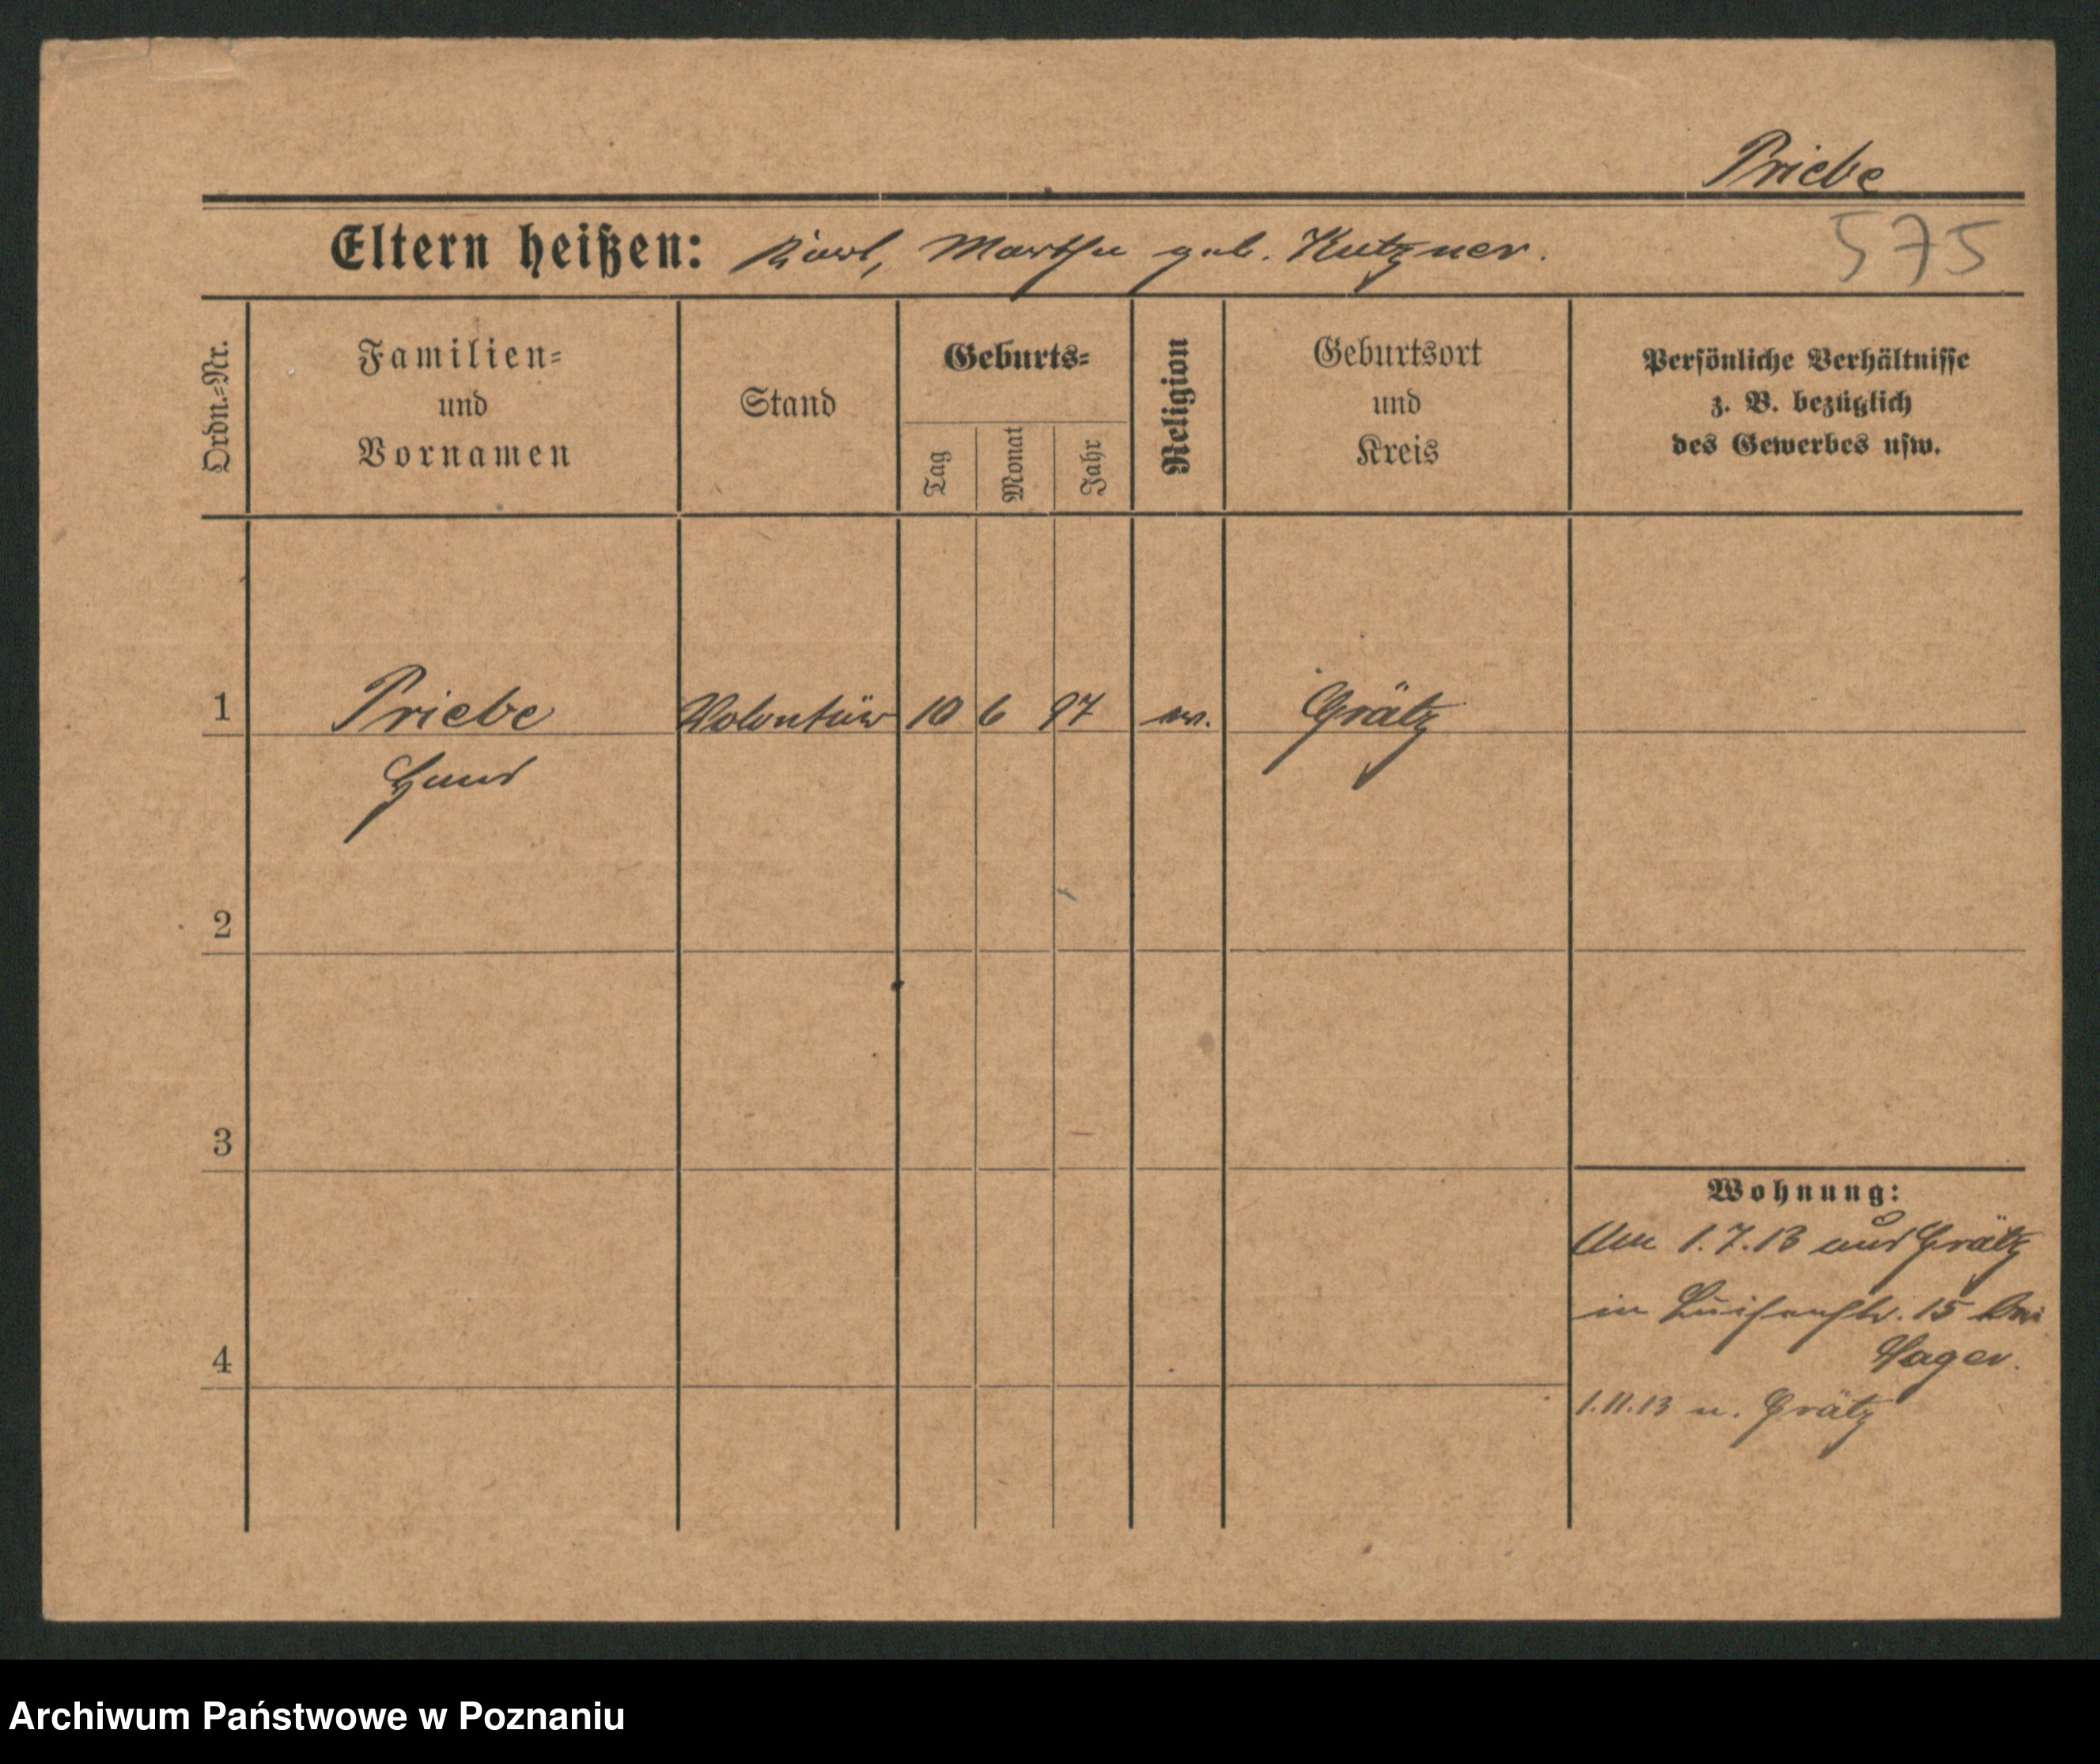 Priebe
Eltern heißen: Karl, Martha geb. Kutzner.
575
Ordn.=Nr.
Familien=
und
Vornamen
Stand
Geburts=
Tag
Monat
Jahr
Religion
Geburtsort
und
Kreis
Persönliche Verhältnisse
z. B. bezüglich
des Gewerbes usw.
1 Priebe Volontär 10 6 97 ev. Grätz
Hans
2
3
4
Wohnung:
Am 1.7.13 aus Grätz
in Luisenstr. 15 bei
Hager.
1.11.13 n. Grätz
Archiwum Państwowe w Poznaniu